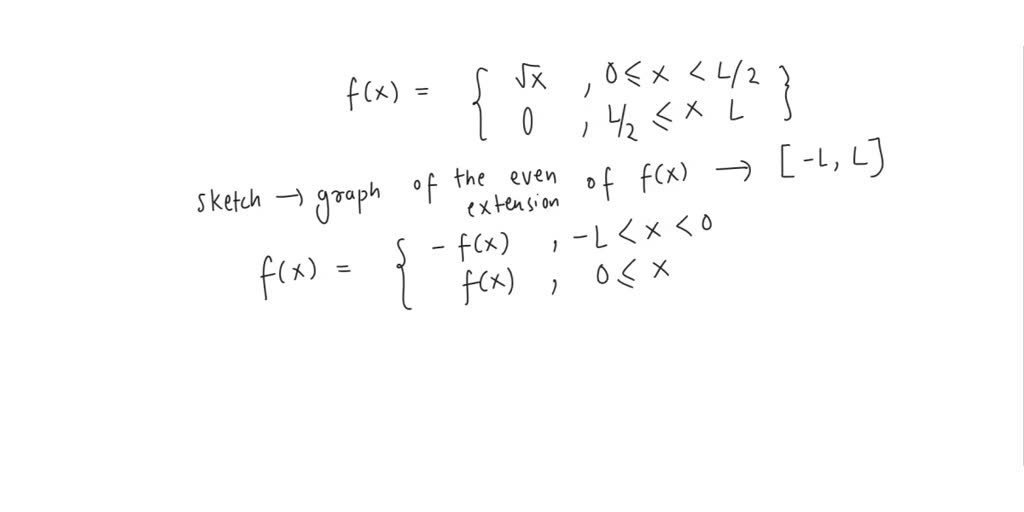 f(x) = { √x , 0 ≤ x < L/2
0 , L/2 ≤ x L }
sketch → graph of the even extension of f(x) → [-L, L]
f(x) = { - f(x) , -L < x < 0
f(x) , 0 ≤ x